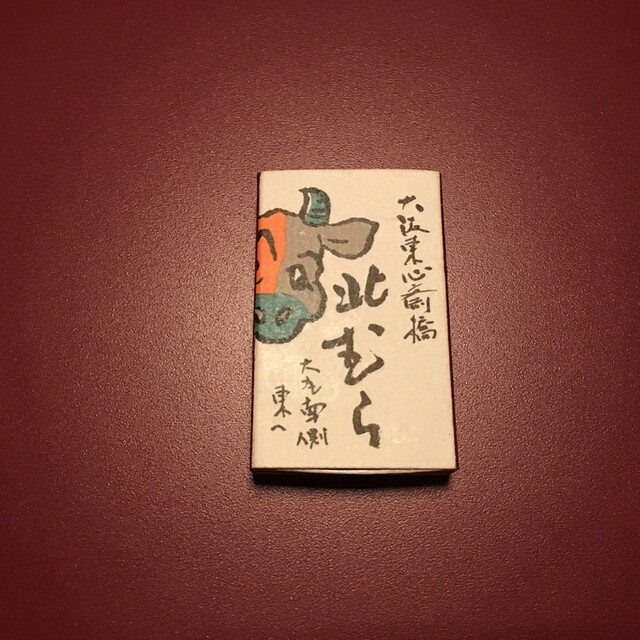 大阪東心斎橋
北むら
大丸南側
東へ